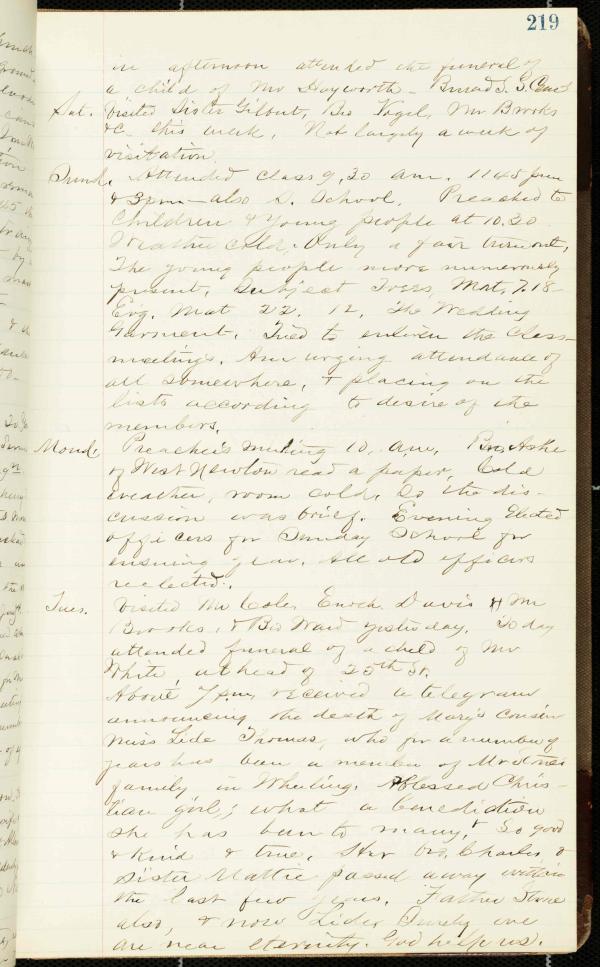 219
in afternoon attended the funeral of
a child of Mr Hayworth - Broad S. S.
Sat. Visited Sister Gilbert, Bro Vogel, Mr Brooks
&c this week. Not largely a week of
visitation.
Sund. Attended class 9,30 am. 1145
& 3pm - also S. School. Preached to
Children & Young people at 10.30
Weather cold. Only a fair turnout,
The young people more numerously
present, Subject Trees, Mat, 7.18
Evg. Mat 22. 12, The Wedding
Garment. Tried to enliven the Class-
meetings. Am urging attendance of
all somewhere, & placing on the
lists according to desire of the
members.
Mond. Preacher's meeting 10, am, Bro Aske
of West Newton read a paper, Cold
weather, room cold. So the dis-
cussion was brief. Evening Elected
officers for Sunday School for
ensuing year. All old officers
reelected.
Tues. Visited Mr Coles, Enoch Davis & Mr
Brooks, & Bro Ward yesterday. Today
attended funeral of a child of Mr
White, at head of 25th St.
About 7pm, received a telegram
announcing the death of Mary's Cousin
Miss Lide Thomas, who for a number of
years has been a member of Mr
family in Wheeling. A blessed Chris-
tian girl; what a benediction
she has been to many, So good
& kind & true, Her bro, Charles &
sister Mattie passed away within
the last few years. Father Stone
also, & now Lide, Surely we
are near eternity. God help us.